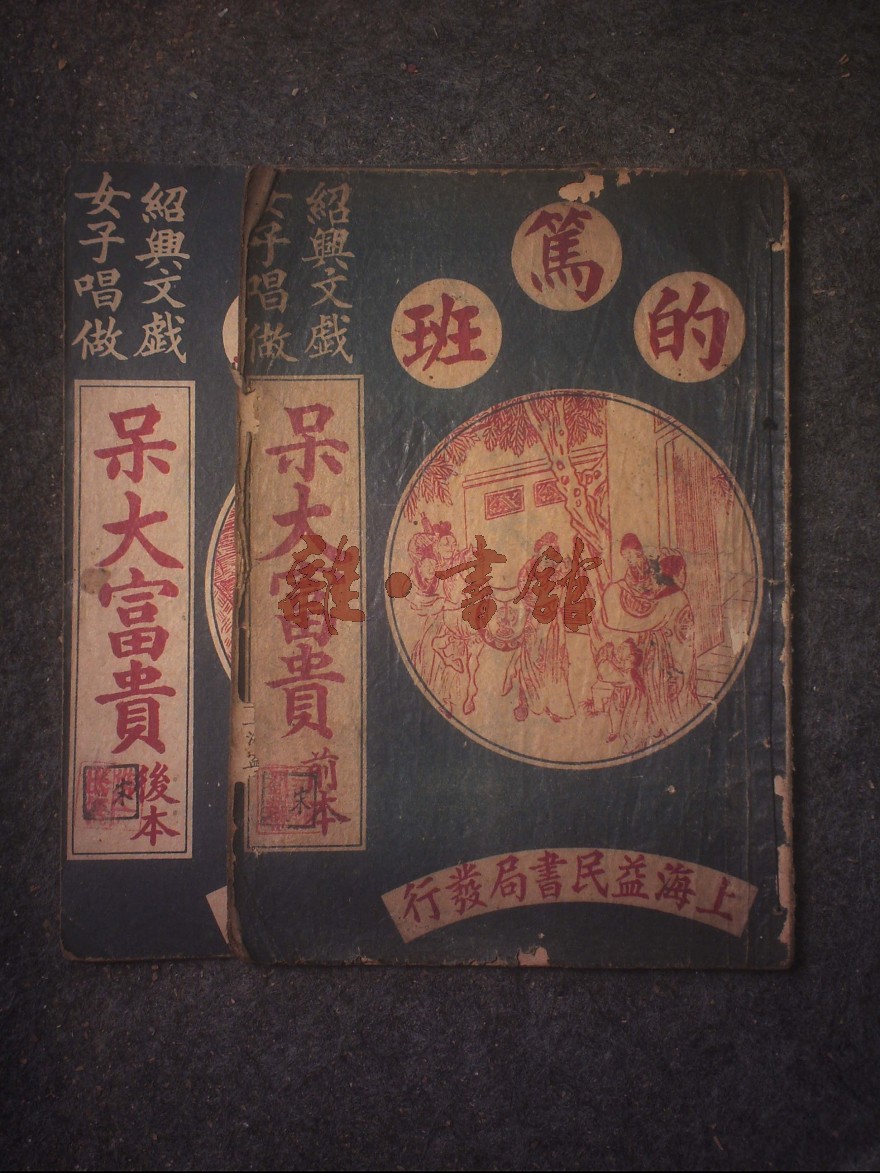 的篤班
紹興文戲
女子唱做
呆大富貴
前本
宋
上海益民書局發行
紹興文戲
女子唱做
呆大富貴
後本
宋
雜·書館